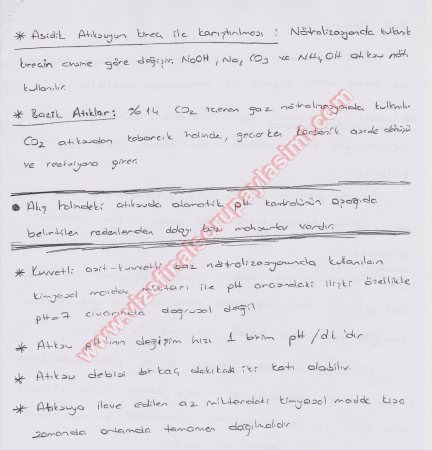 * Asidik Atıksuyun kireç ile karıştırılması : Nötralizasyonda kullanılan
kirecin cinsine göre değişir, NaOH, Na2 CO3 ve NH4 OH atıksu nötr.
kullanılır.
* Bazik Atıklar; %14 CO2 içeren gaz nötralizasyonda kullanılır
CO2 atıksudan kabarcık halinde, geçerken karbonik aside dönüşür
ve reaksiyona girer.
● Akış halindeki atıksuda otomatik pH kontrolünün aşağıda
belirtilen nedenlerden dolayı bazı mahsurlar vardır.
* Kuvvetli asit-kuvvetli baz nötralizasyonunda kullanılan
kimyasal madde miktarı ile pH arasındaki ilişki özellikle
pH=7 civarında doğrusal değil
* Atıksu pH'ının değişim hızı 1 birim pH/dk'dır.
* Atıksu debisi birkaç dakikada iki katı olabilir.
* Atıksuya ilave edilen az miktardaki kimyasal madde kısa
zamanda ortamda tamamen dağılmalıdır
www.vizefinalsorupaylasimi.com